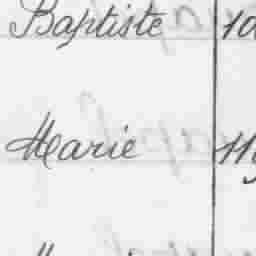 Baptiste 10
Marie 11